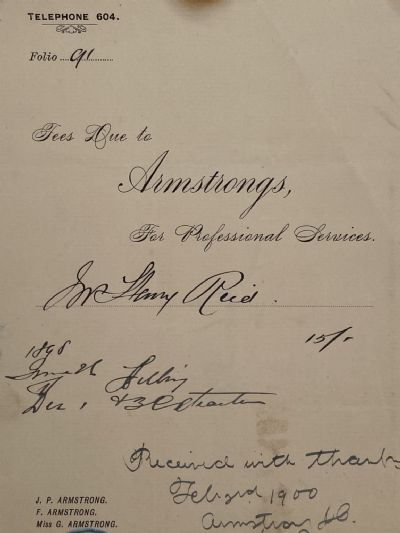 TELEPHONE 604.
Folio 91
Fees Due to
Armstrongs,
For Professional Services.
Mr Henry Reid.
15/-
1898
Filling
Dec. Extraction
Received with thanks
Feb 3rd 1900
J. P. ARMSTRONG.
F. ARMSTRONG.
Miss G. ARMSTRONG.